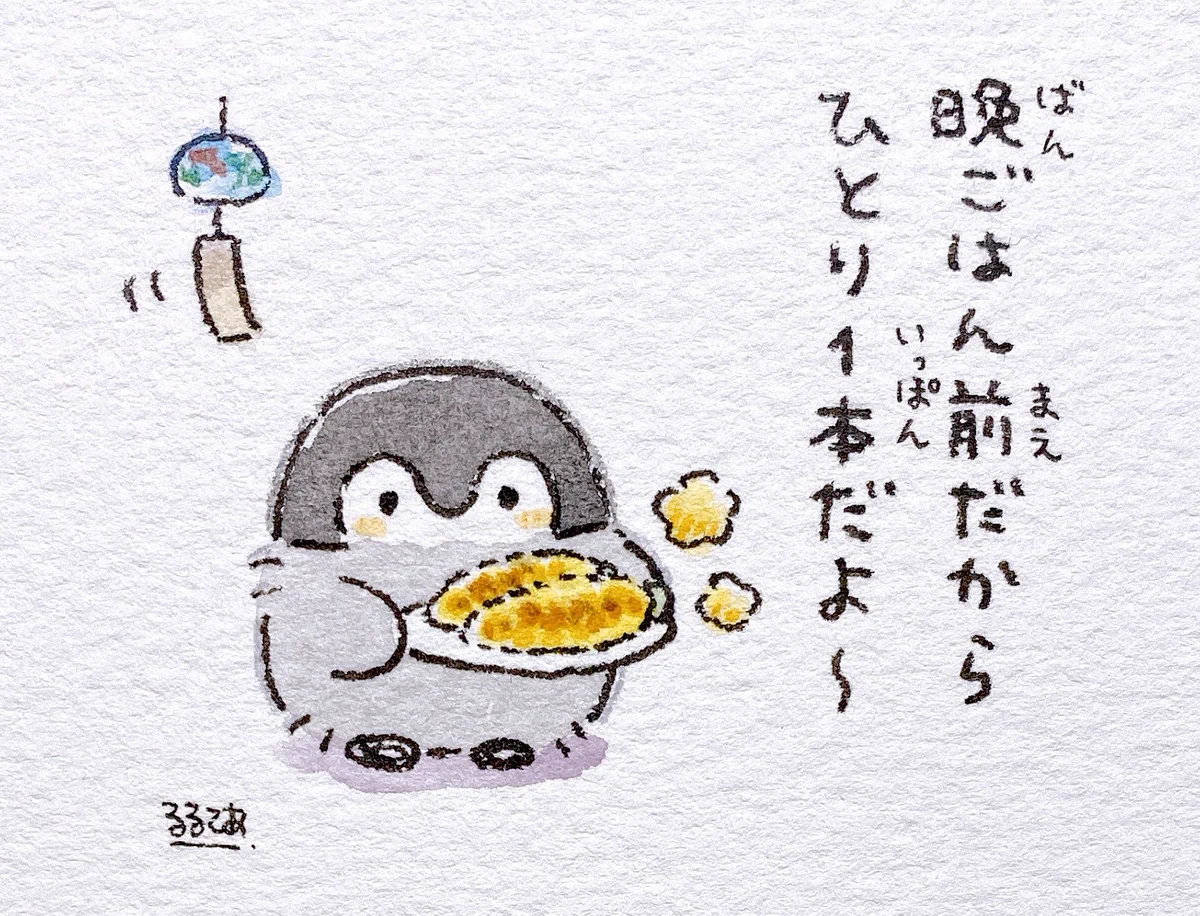 晩ごはん前だから
ばん
まえ
ひとり1本だよ〜
いっぽん
るるてあ